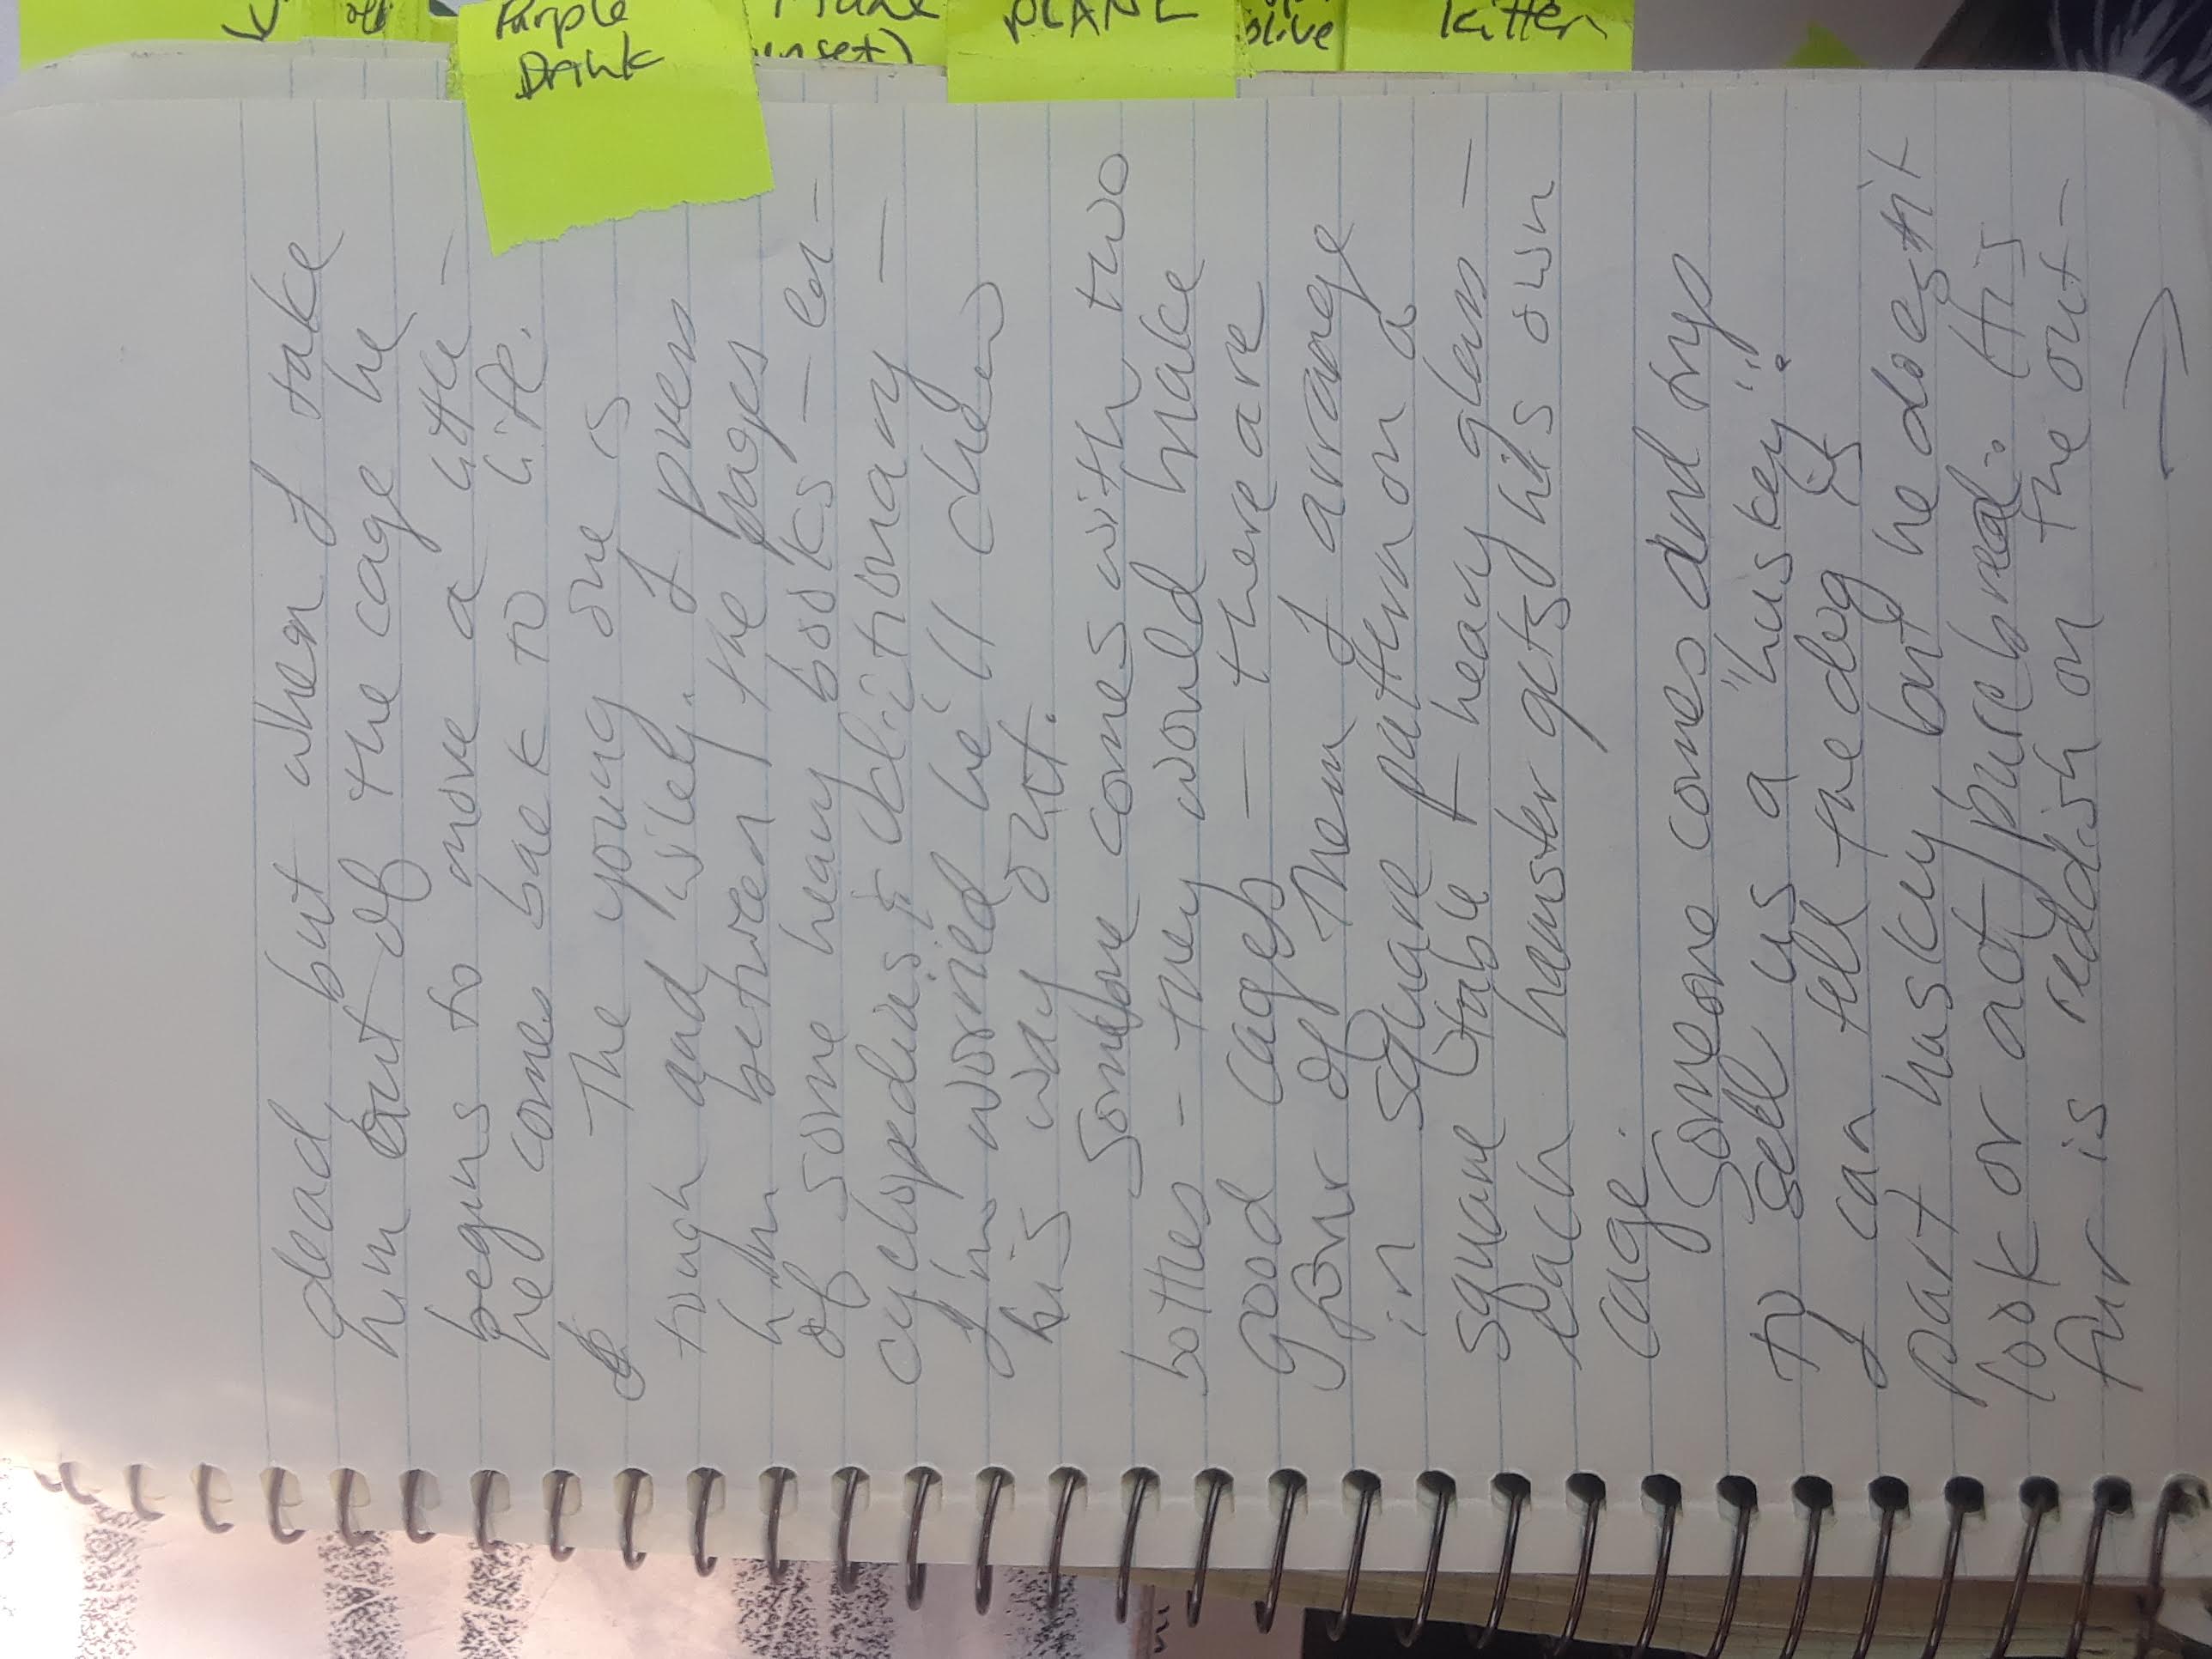 Purple
Drink
nset)
PLANE
olive
Kitten
dead but when I take
him out of the cage he
begins to move a little —
he comes back to life.
The young one is
tough and wiley. I press
him between the pages
of some heavy books — en-
cyclopedias & dictionary —
I'm worried he'll chew
his way out.
Someone comes with two
bottles - they would make
good cages — there are
four of them I arrange
in square pattern on a
square table of heavy glass —
each hamster gets his own
cage.
Someone comes and trys
to sell us a "huskey".
I can tell the dog is
part huskey but he doesn't
look or act pure bred. His
fur is redish on the out -